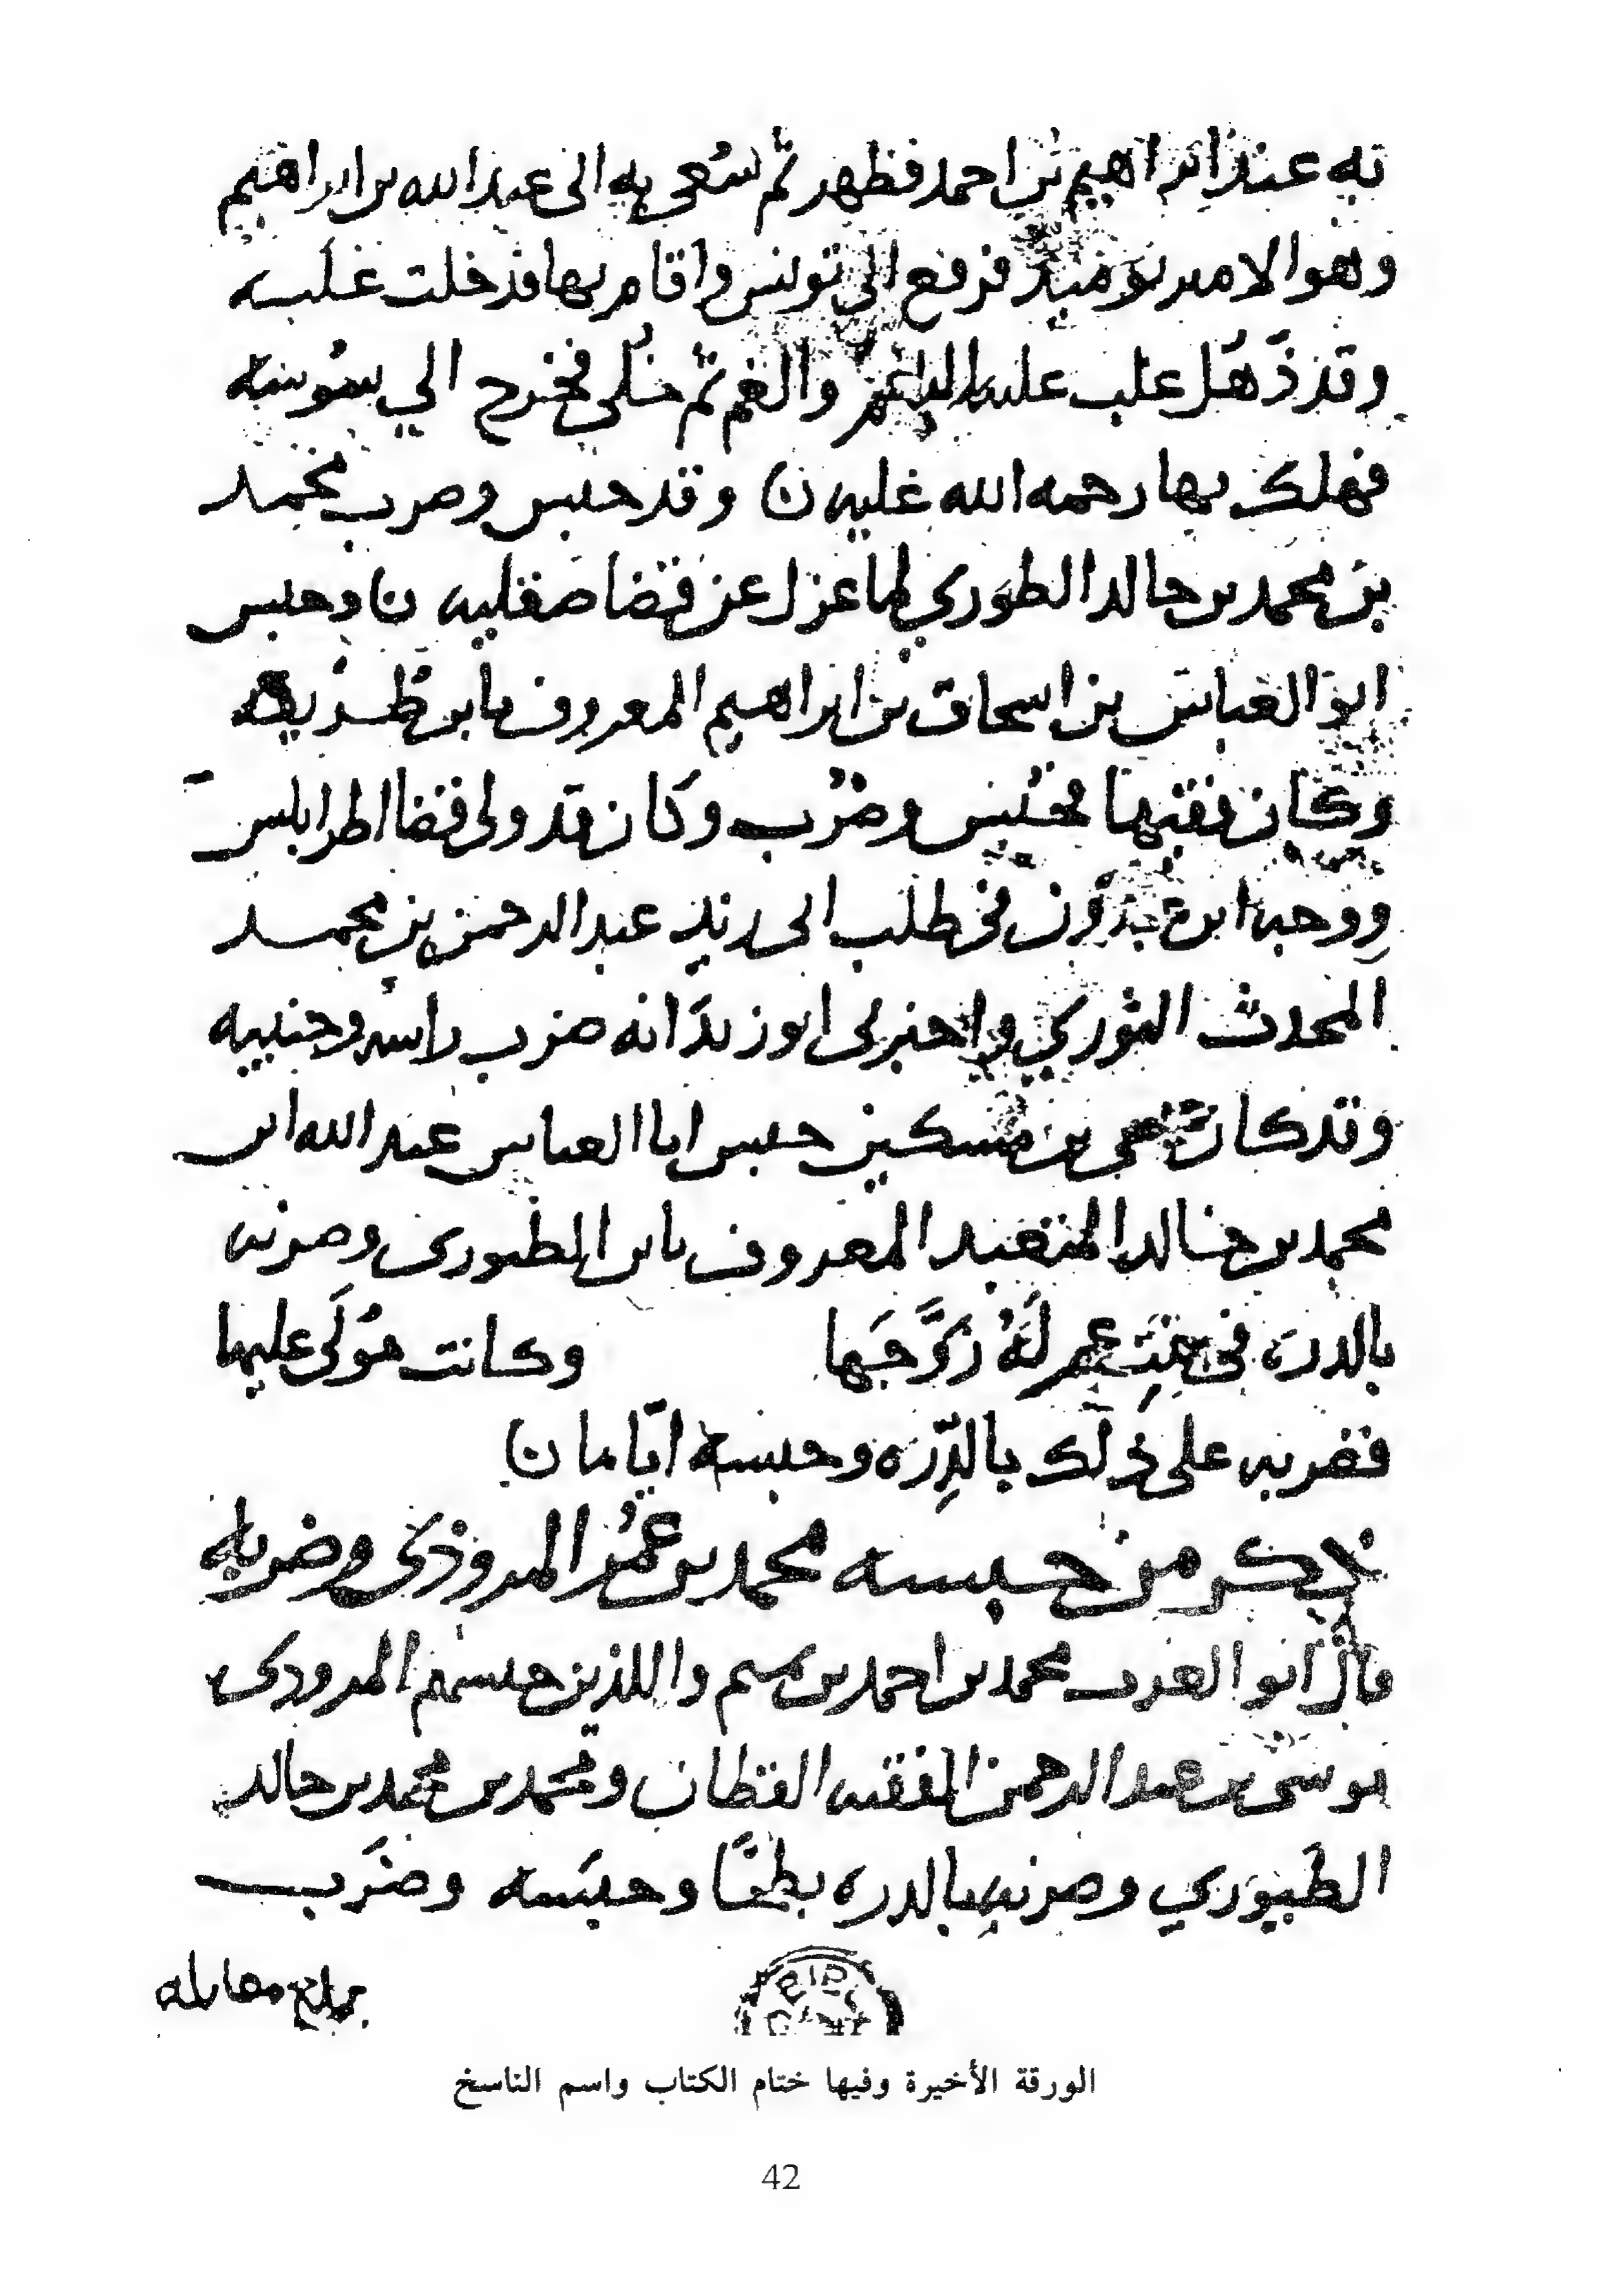 به عند ابراهيم بن احمد فظهر ثم سُعي به الى عبد الله بن ابراهيم
وهو الامير يوميد فرفع الى تونس واقام بها فدخلت عليه
وقد ذَهَل غلب عليه الهم والغم ثم خُلى فخرج الي سُوسه
فهلك بها رحمه الله عليه ن وقد حبس وضرب محمد
بن محمد بن خالد الطوري لما عزل عن قضا صقليه ن وحبس
ابو العباس بن اسحاق بن ابراهيم المعروف بابن
وكان فقيها فحُبِس وضُرب وكان قد ولى قضا اطرابلس
ووجه ابن في طلب ابى زيد عبد الرحمن بن محمد
المحدث الثوري واخبرنى ابو زيد انه ضرب راسه وجنبيه
وقد كان بن مسكين حبس ابا العباس عبد الله ابن
محمد بن خالد المتعبد المعروف بابن الطبورى وضربه
بالدره فى بنت عم لَهُ زَوَّجَها وكانت مُوَلى عليها
فضربه على ذلك بالدِّره وحبسه ايّاما ن
ذكر من حبسه محمد بن عُمر المروذي وضربه
قال ابو العرب محمد بن احمد بن تميم واللذين حبسهم المرودى
موسى بن عبد الرحمن الفقيه القطان ومحمد بن محمد بن خالد
الطبوري وضربه بالدره بطحًا وحبَسه وضَرب
بلغ مقابله
الورقة الأخيرة وفيها ختام الكتاب واسم الناسخ
42